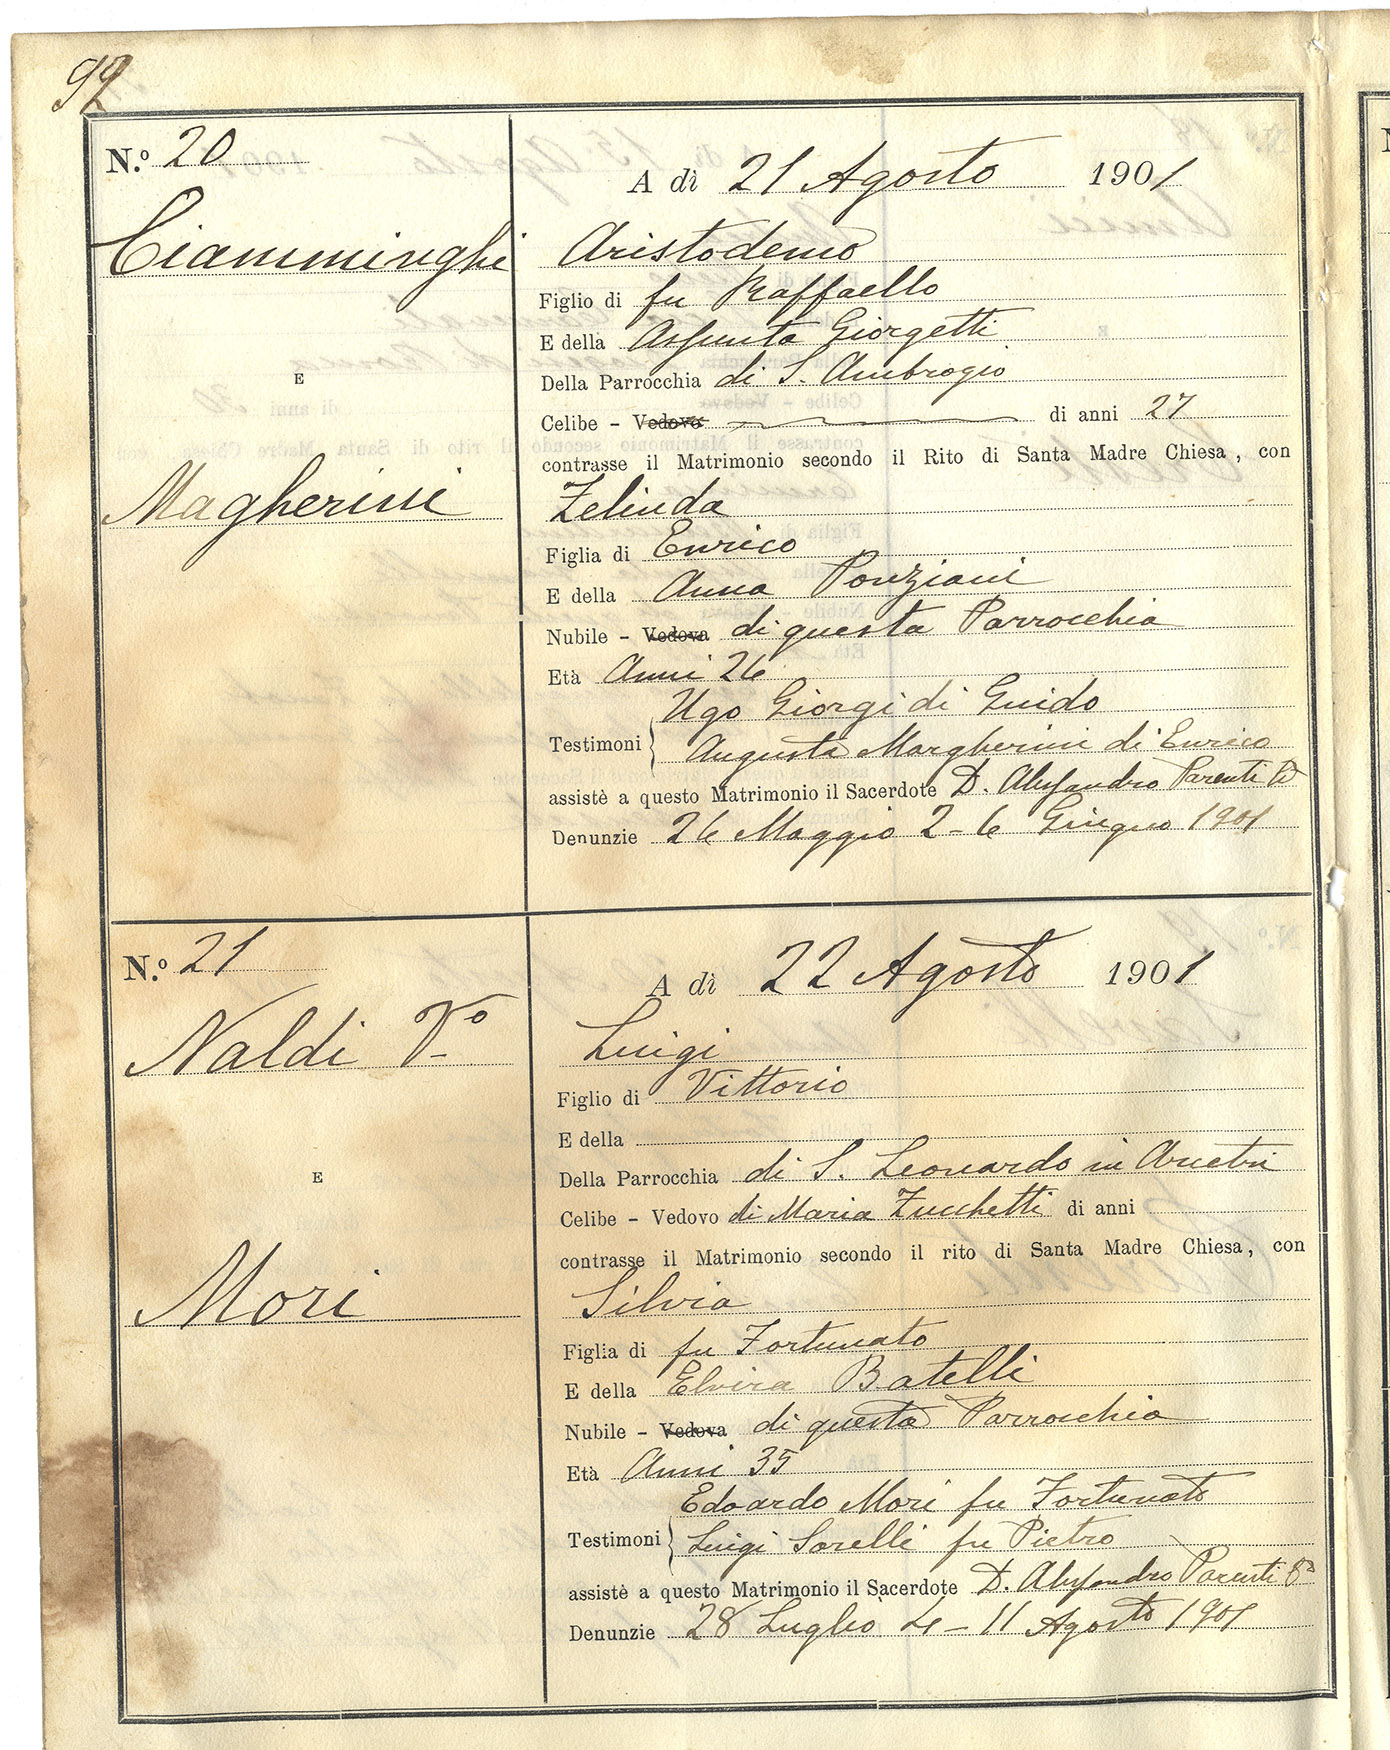 92
N.o 20
A dì 21 Agosto 1901
Ciamminghi
Aristodemo
Figlio di fu Raffaello
E della Assunta Giorgetti
Della Parrocchia di S. Ambrogio
E
Celibe - Vedovo di anni 27
contrasse il Matrimonio secondo il Rito di Santa Madre Chiesa, con
Magherini
Zelinda
Figlia di Enrico
E della Anna Ponziani
Nubile - Vedova di questa Parrocchia
Età Anni 26
Ugo Giorgi di Guido
Testimoni { Augusta Margherini di Enrico
assistè a questo Matrimonio il Sacerdote D. Alessandro Parenti
Denunzie 26 Maggio 2-6 Giugno 1901
N.o 21
A dì 22 Agosto 1901
Naldi Vo
Luigi
Figlio di Vittorio
E della
Della Parrocchia di S. Leonardo in Arcetri
E
Celibe - Vedovo di Maria Zucchetti di anni
contrasse il Matrimonio secondo il rito di Santa Madre Chiesa, con
Mori
Silvia
Figlia di fu Fortunato
E della Elvira Batelli
Nubile - Vedova di questa Parrocchia
Età Anni 35
Edoardo Mori fu Fortunato
Testimoni { Luigi Sorelli fu Pietro
assistè a questo Matrimonio il Sacerdote D. Alessandro Parenti
Denunzie 28 Luglio 4-11 Agosto 1901